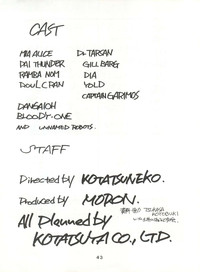 CAST
MIA ALICE
DAI THUNDER
RAMBA NOM
DOUL CRAN
DANGAIOH
BLOODY-ONE
AND UNNAMED ROBOTS.
Dr. TARSAN
GILL BARG
DIA
YOLD
CAPTAIN GARIMOS
STAFF
Directed by KOTATSUNEKO.
Produced by MODON.
All Planned by
KOTATSUYA CO., LTD.
43